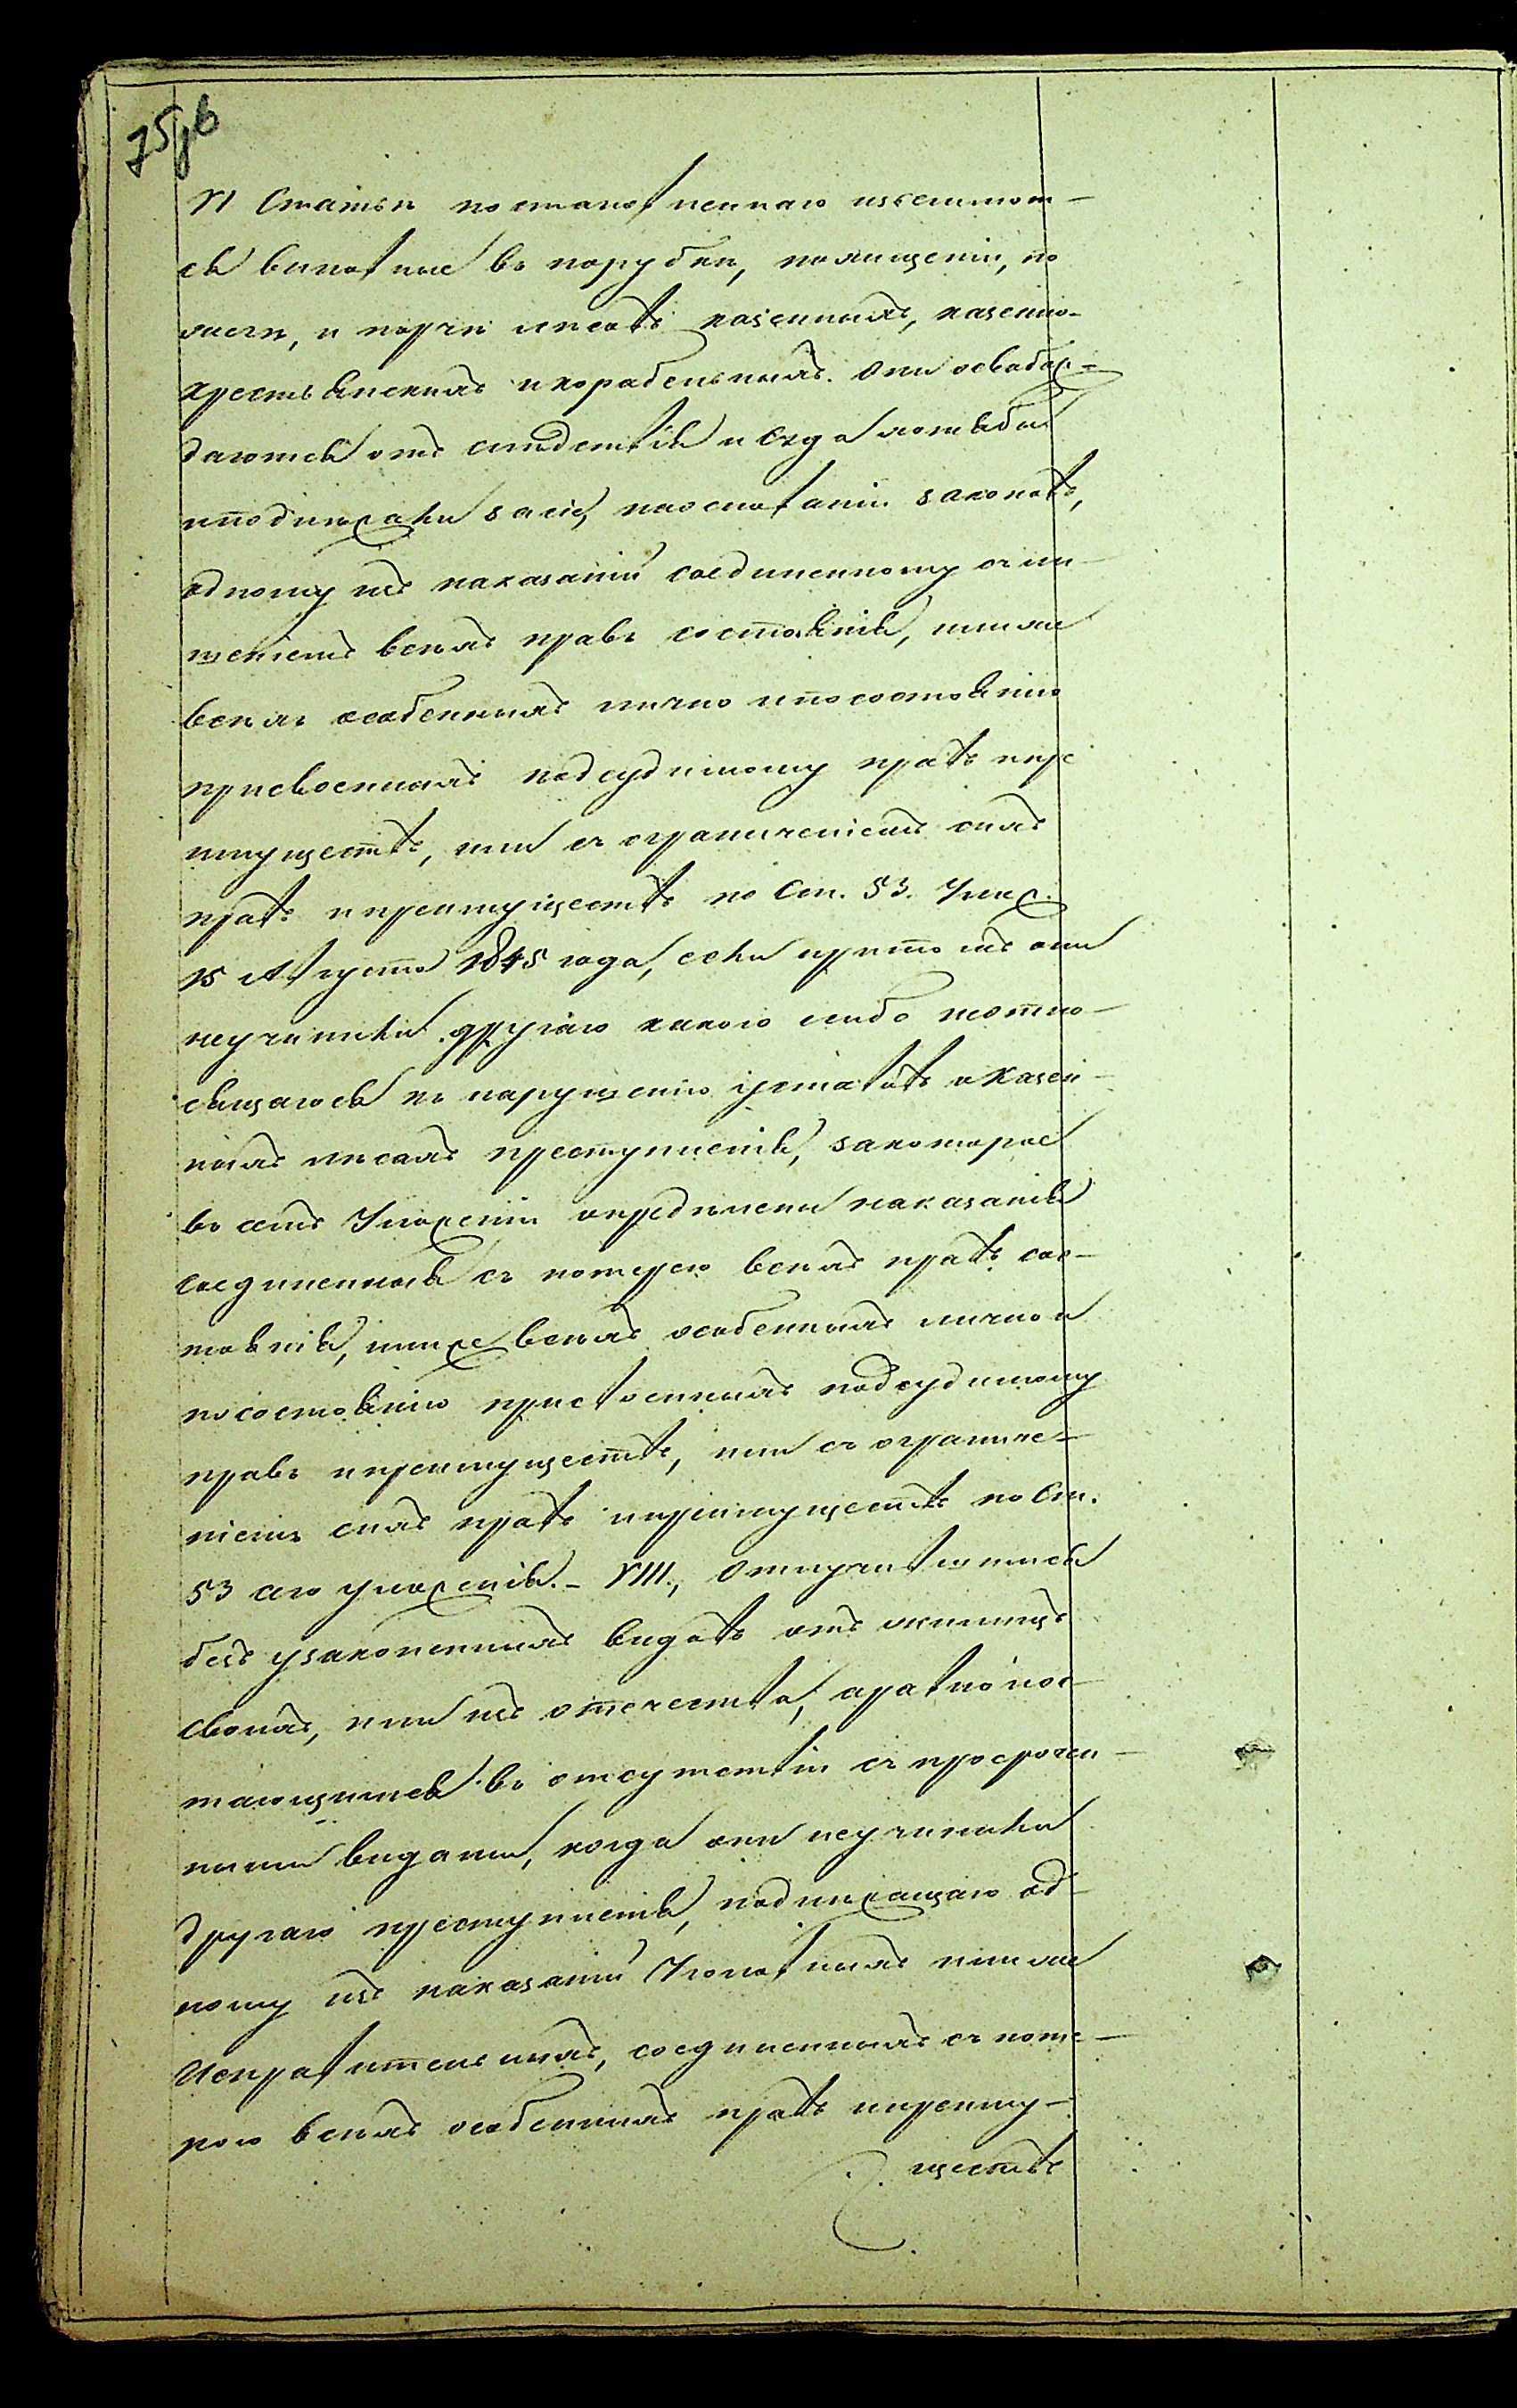 75об
VI Статьи постановленнаго изъемлют-
ся виновные въ порубке, похищеніи, по
жоге, и порче лесовъ казенныхъ, казенно-
крестьянскихъ и корабельныхъ. Они освобож-
даются отъ следствія и суда хотя бы
и подлежали за сіе, на основаніи законовъ,
одному изъ наказаній соединенному с ли-
шеніемъ всехъ правъ состоянія, или же
всехъ особенныхъ лично и по состоянію
присвоенныхъ подсудимому правъ и пре
имуществъ, или съ ограниченіемъ сихъ
правъ и преимуществъ по Ст. 53. Улож.
15 Августа 1845 года, если притомъ они
неучинили другаго какого либо неотно-
сящагося къ нарушенію уставовъ о Казен-
ныхъ лесахъ преступленія, за которое
въ семъ Уложеніи определены наказанія
соединенныя съ потерею всехъ правъ сос-
тоянія, или же всехъ особенныхъ лично и
по состоянію присвоенныхъ подсудимому
правъ и преимуществъ, или съ ограниче-
ніемъ сихъ правъ и преимуществъ по Ст.
53 сего уложенія. – VIII., Отлучившимся
безъ узаконенныхъ видовъ отъ жилищъ
своихъ, или изъ отечества, а равно и ос-
тающимся въ отсутствіи съ просрочен-
ными видами, когда они неучинили
другаго преступленія, подлежащаго од-
ному изъ наказаній Уголовныхъ или же
Исправительныхъ, соединенныхъ съ поте-
рею всехъ особенныхъ правъ и преиму-
ществъ